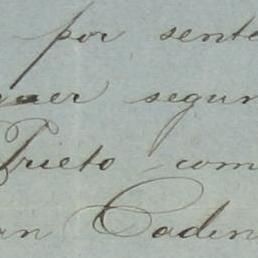 por sente
quer segun
Prieto com
an Cadin